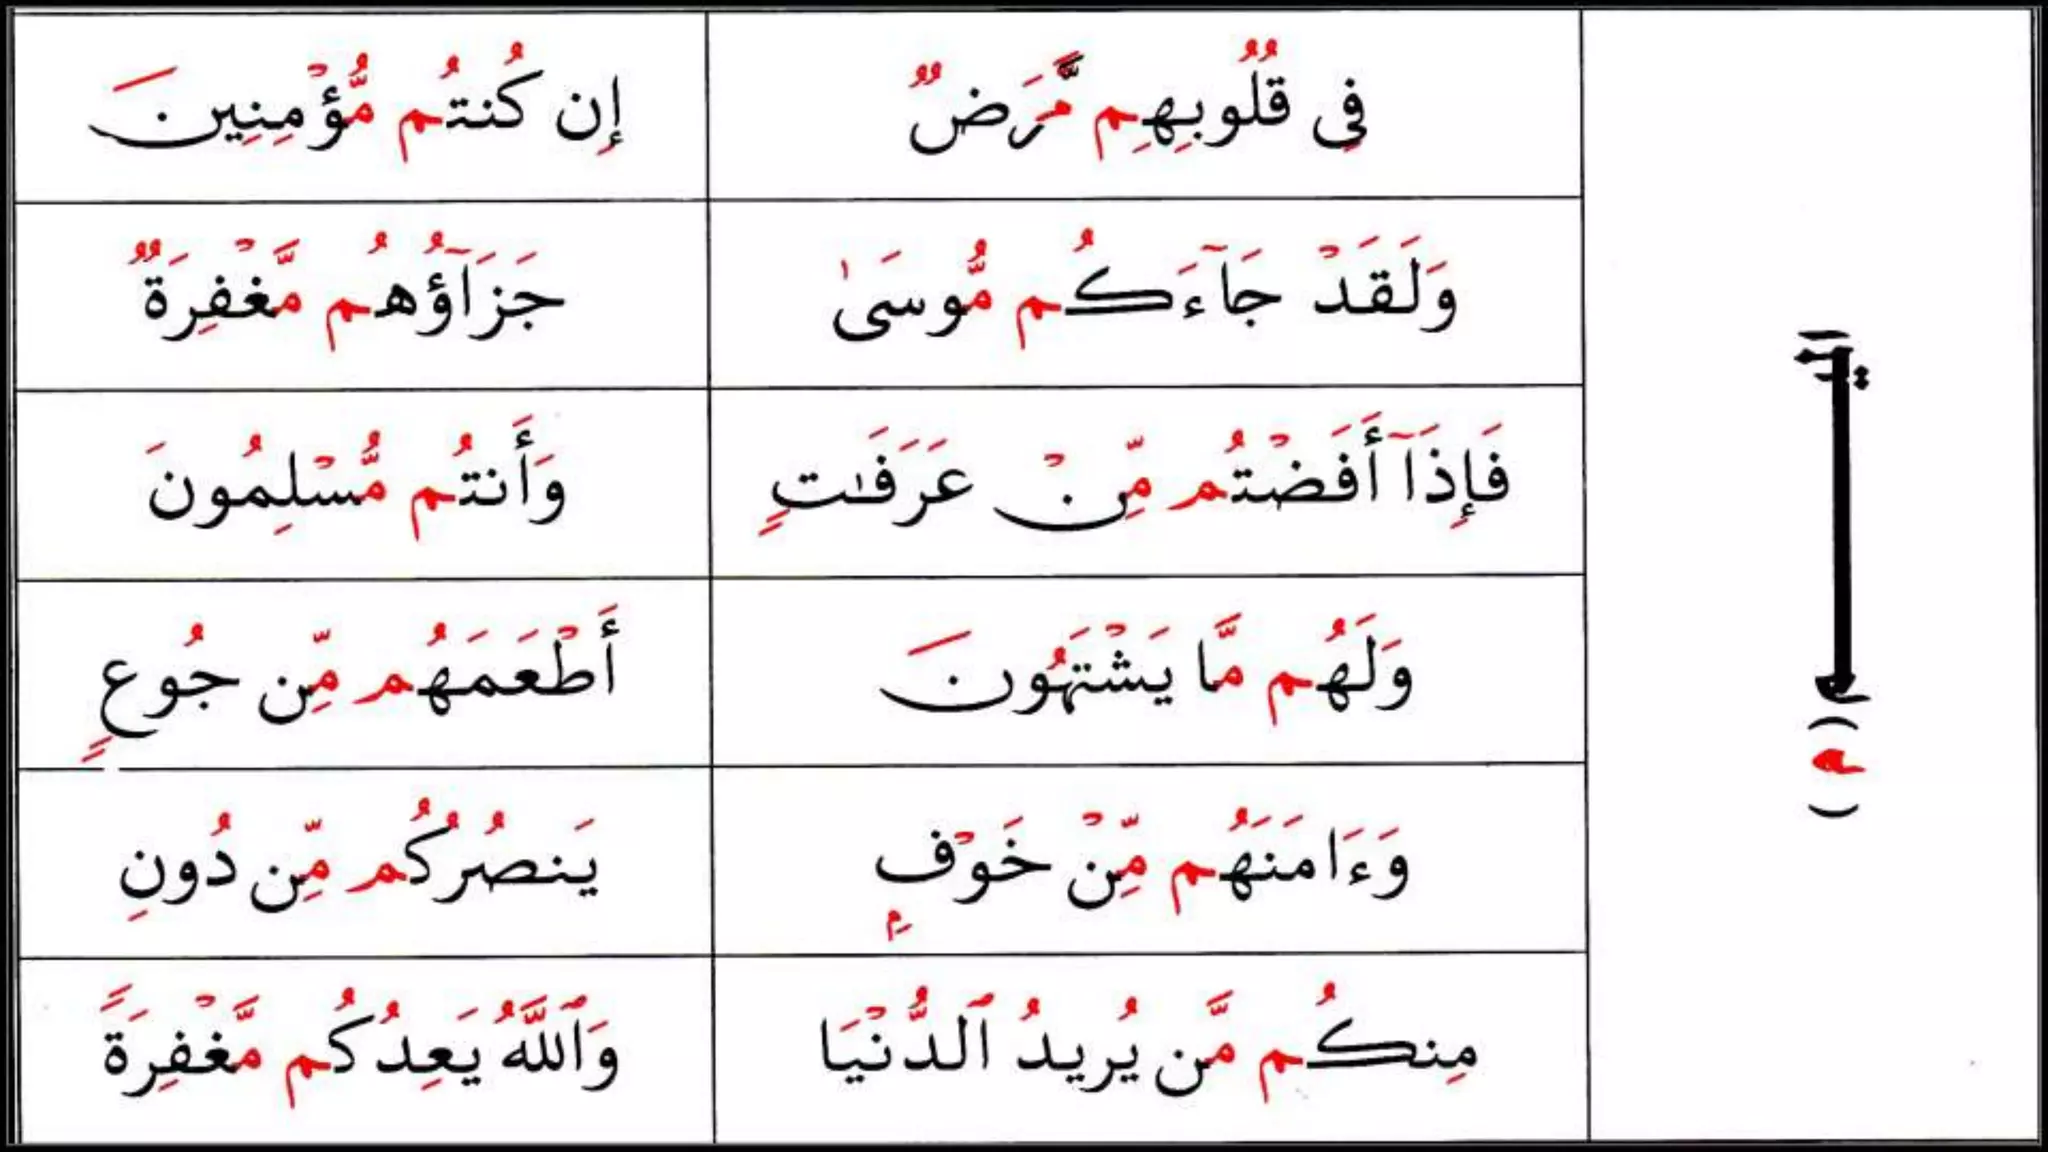 فِى قُلُوبِهِم مَّرَضٌ
إِن كُنتُم مُّؤْمِنِينَ
وَلَقَدْ جَآءَكُم مُّوسَىٰ
جَزَآؤُهُم مَّغْفِرَةٌ
فَإِذَآ أَفَضْتُم مِّنْ عَرَفَٰتٍ
وَأَنتُم مُّسْلِمُونَ
وَلَهُم مَّا يَشْتَهُونَ
أَطْعَمَهُم مِّن جُوعٍ
وَءَامَنَهُم مِّنْ خَوْفٍۭ
يَنصُرُكُم مِّن دُونِ
مِنكُم مَّن يُرِيدُ ٱلدُّنْيَا
وَٱللَّهُ يَعِدُكُم مَّغْفِرَةً